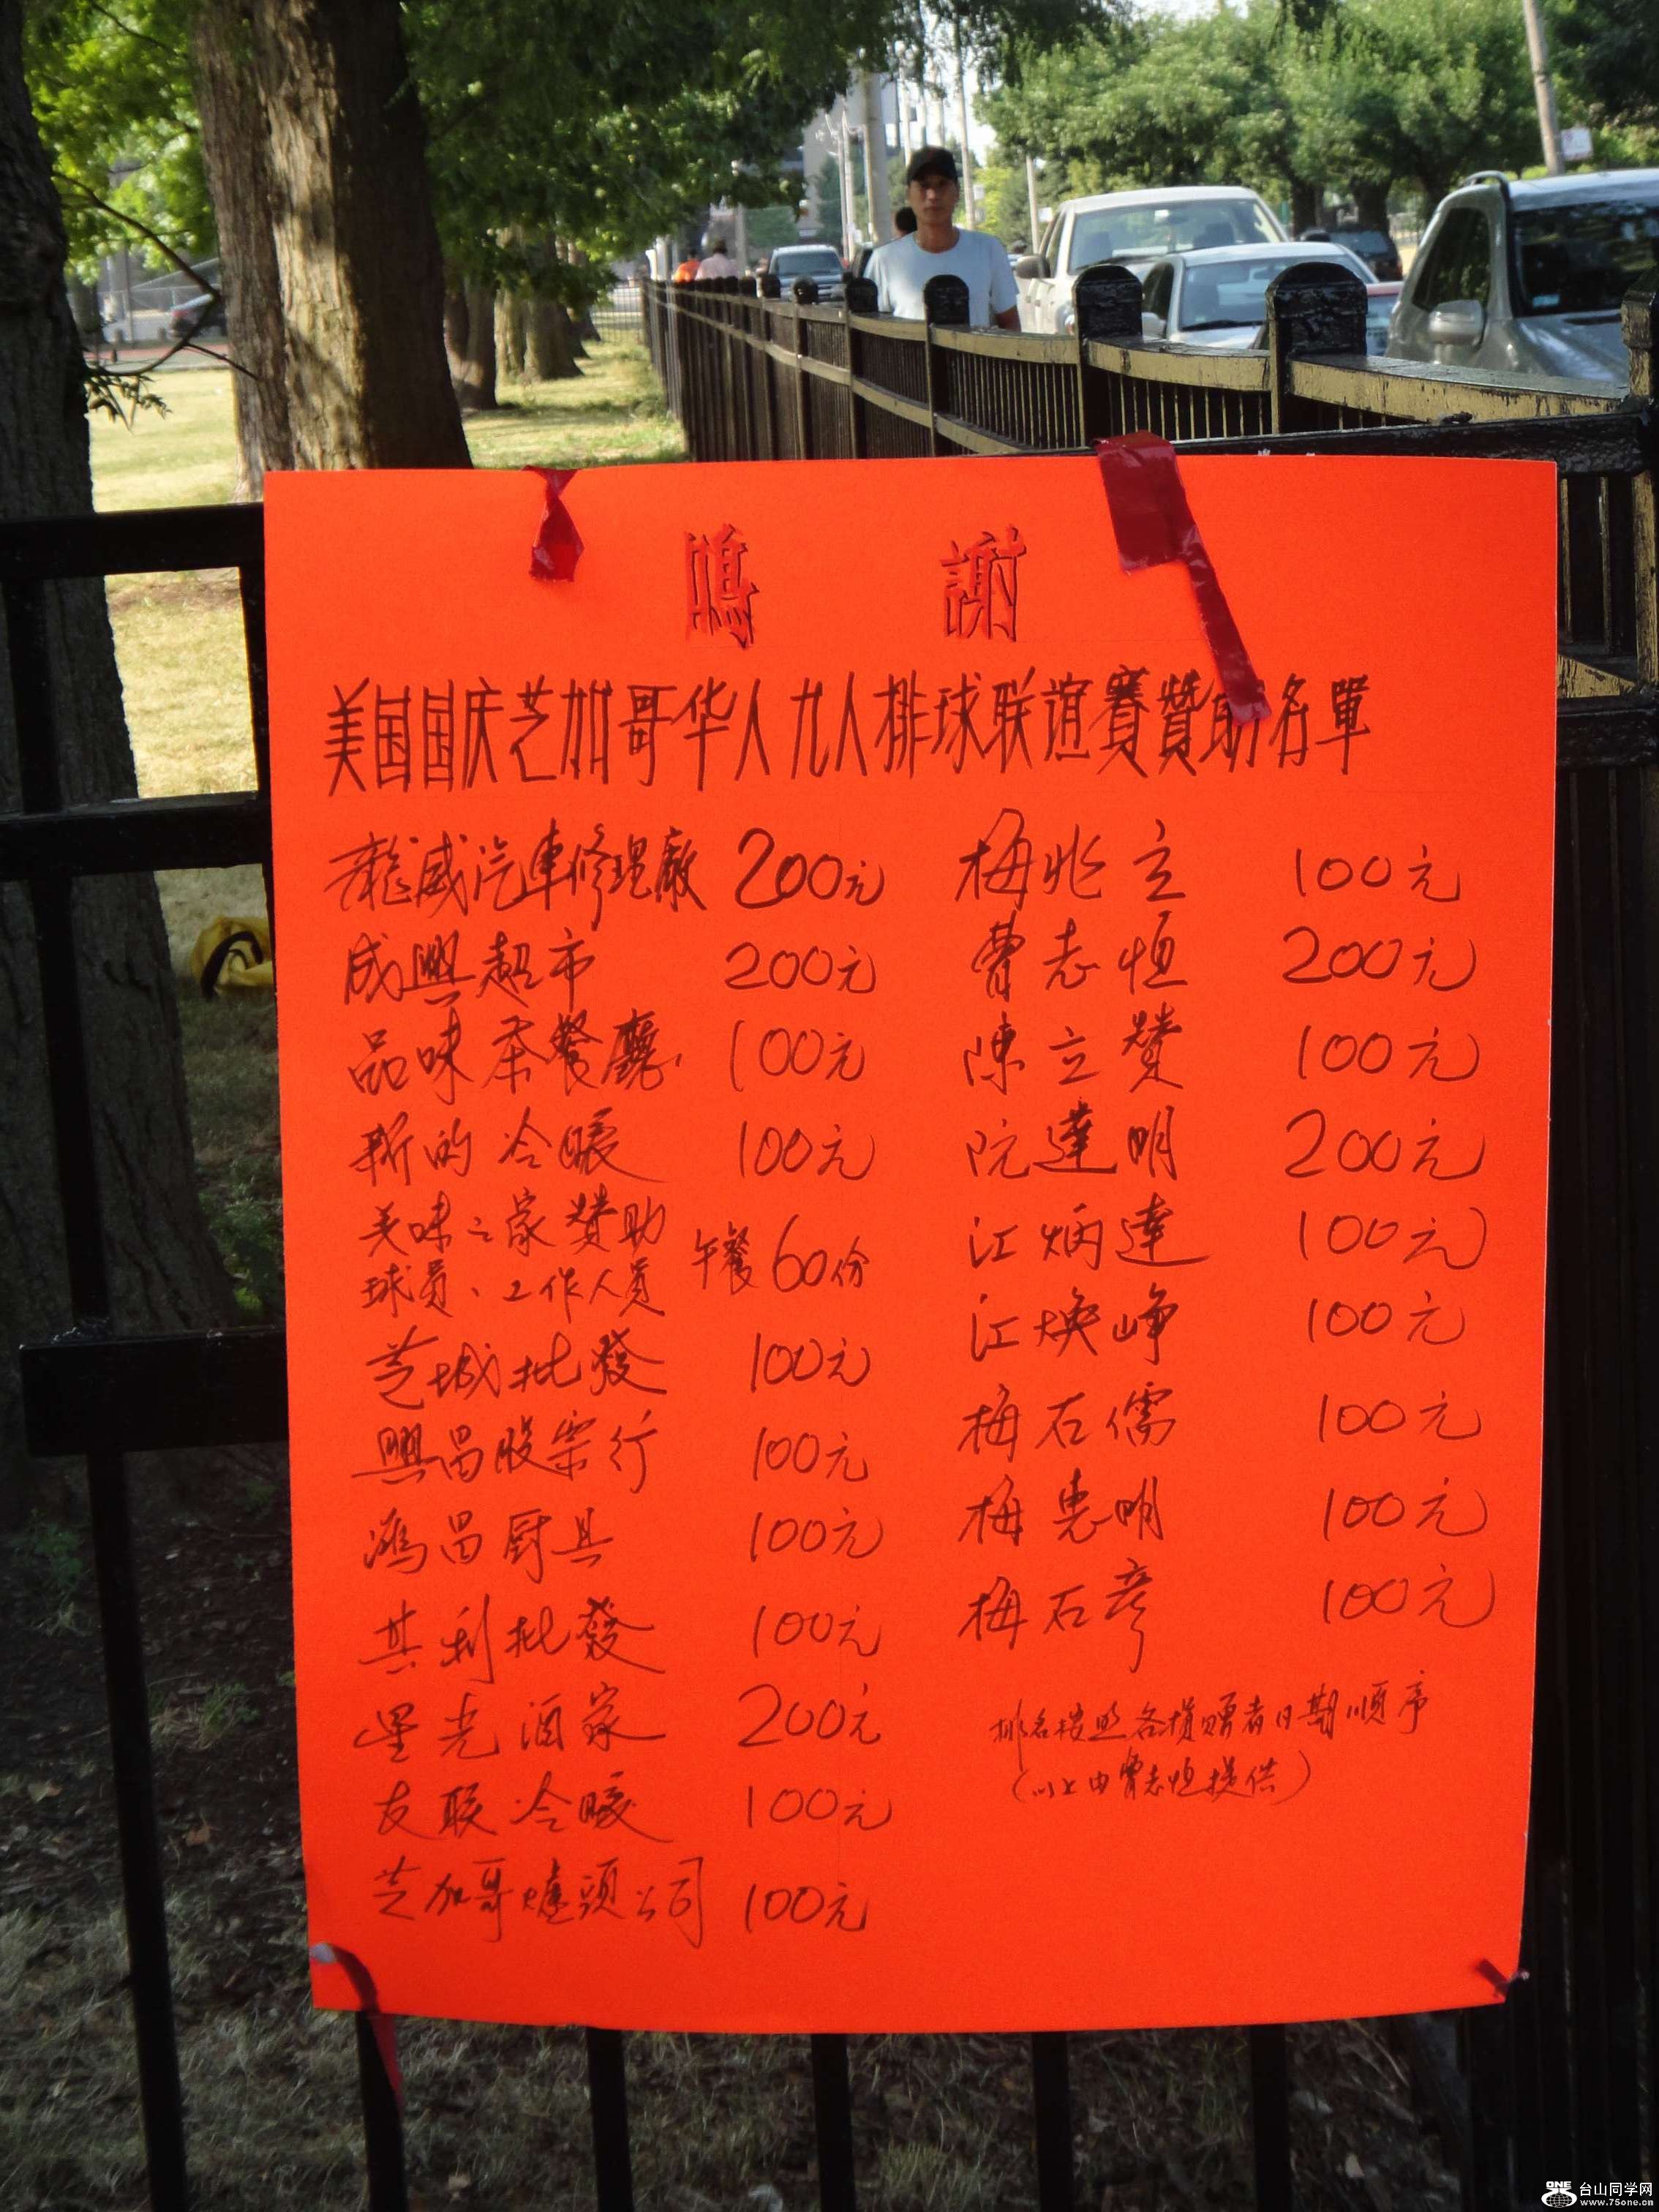 鳴謝
美国国庆芝加哥华人九人排球联谊賽贊助名單
龍威汽車修理廠 200元
成興超市 200元
品味茶餐廳 100元
新的冷暖 100元
美味之家贊助
球員、工作人員 午餐60份
芝城批發 100元
興昌股宗行 100元
鴻昌厨具 100元
共利批發 100元
星光酒家 200元
友联冷暖 100元
芝加哥爐頭公司 100元
梅兆立 100元
曹志恒 200元
陳立贊 100元
阮達明 200元
江炳達 100元
江焕峥 100元
梅石儒 100元
梅惠明 100元
梅石彦 100元
排名按照各捐贈者日期順序
(以上由曹志恒提供)
ONE 台山同学网
www.75one.com